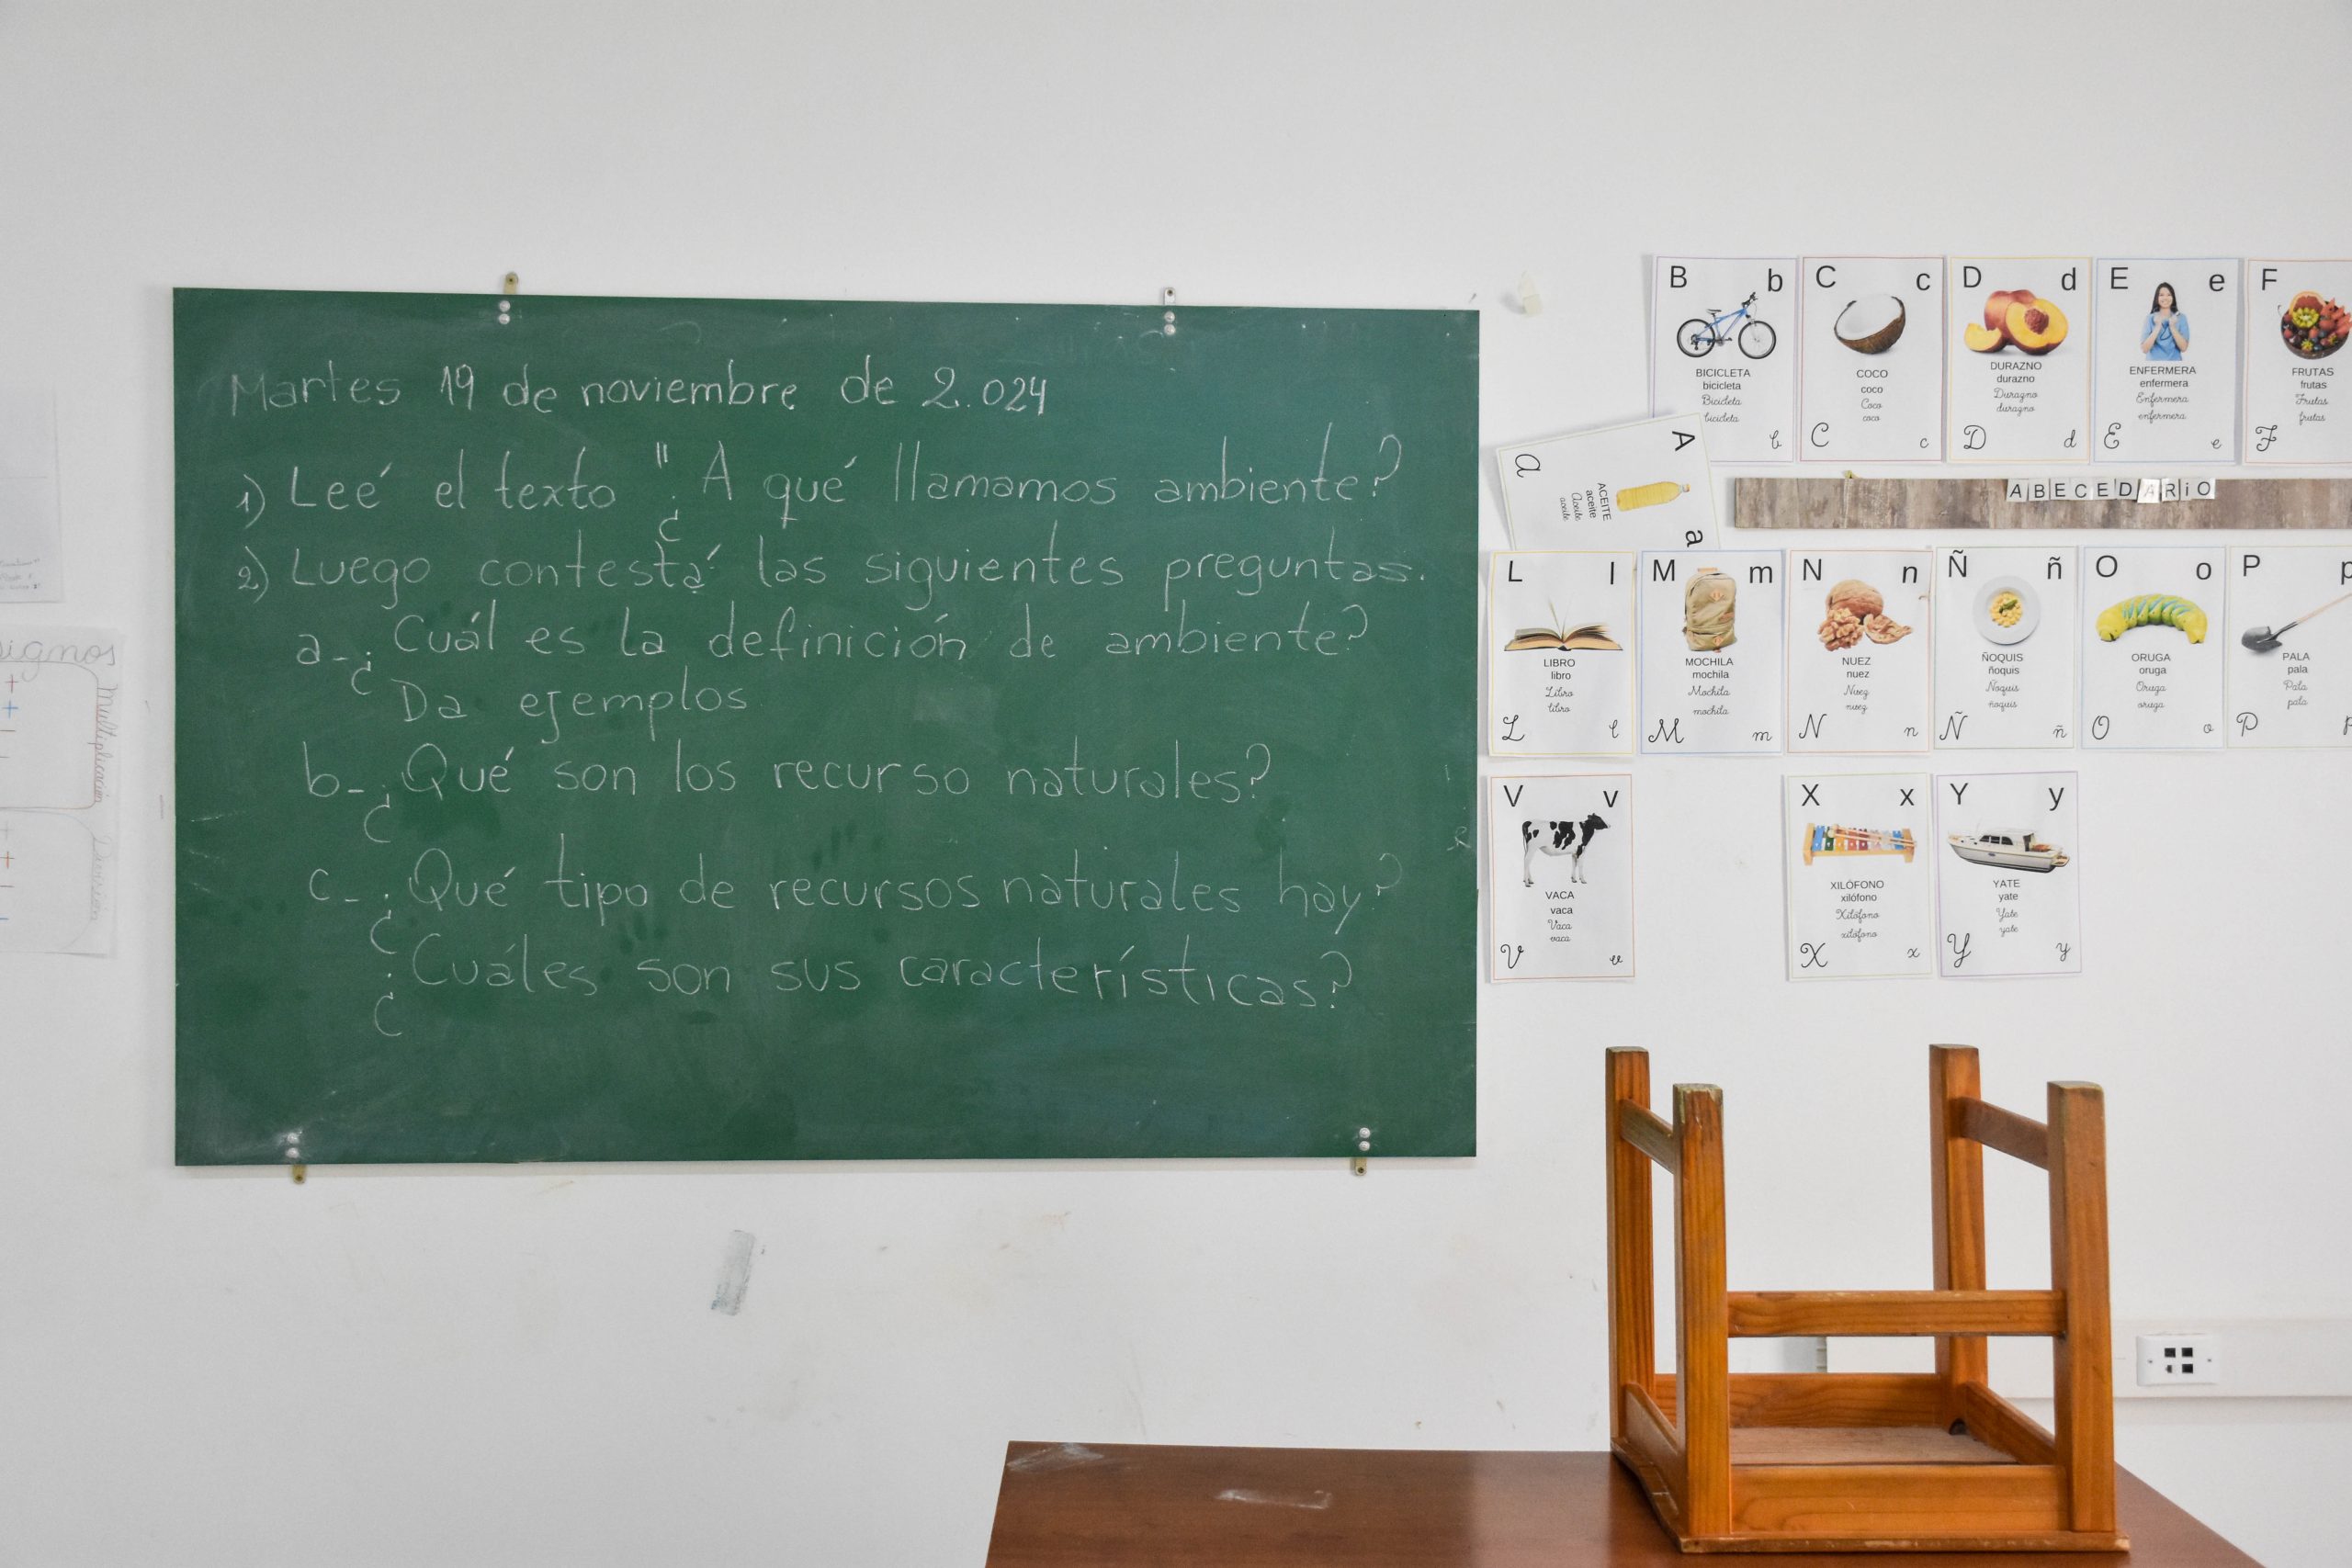 Martes 19 de noviembre de 2.024
1) Leé el texto "¿A qué llamamos ambiente?
2) Luego contestá las siguientes preguntas.
a-¿Cuál es la definición de ambiente?
Da ejemplos
b-¿Qué son los recurso naturales?
c-¿Qué tipo de recursos naturales hay?
¿Cuáles son sus características?
signos
Multiplicación
B b
BICICLETA
bicicleta
Bicicleta
bicicleta
b
C c
COCO
coco
Coco
coco
C c
D d
DURAZNO
durazno
Durazno
durazno
D d
E e
ENFERMERA
enfermera
Enfermera
enfermera
E e
F
FRUTAS
frutas
Frutas
frutas
F
A a
ACEITE
aceite
Aceite
aceite
a
ABECEDARiO
L l
LIBRO
libro
Libro
libro
L l
M m
MOCHILA
mochila
Mochila
mochila
M m
N n
NUEZ
nuez
Nuez
nuez
N n
Ñ ñ
ÑOQUIS
ñoquis
Ñoquis
ñoquis
Ñ ñ
O o
ORUGA
oruga
Oruga
oruga
O o
P p
PALA
pala
Pala
pala
P p
V v
VACA
vaca
Vaca
vaca
V v
X x
XILÓFONO
xilófono
Xilófono
xilófono
X x
Y y
YATE
yate
Yate
yate
Y y